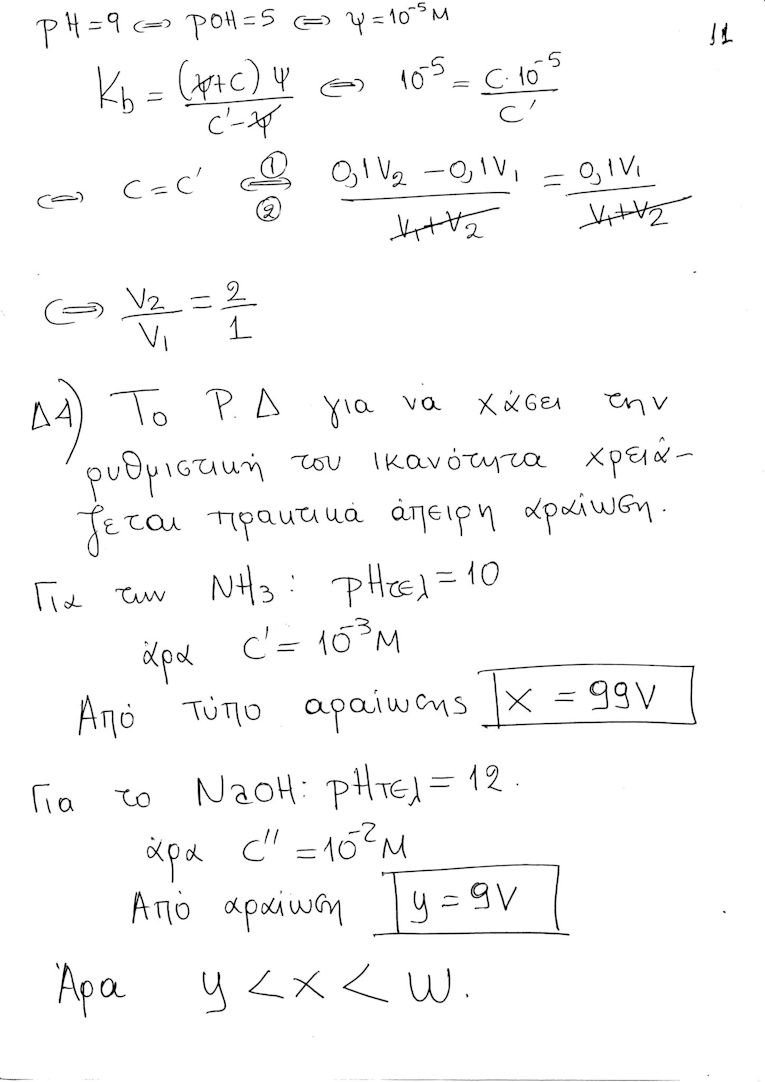 pH=9 ⇔ pOH=5 ⇔ ψ=10⁻⁵M
11
Kb = (ψ+C)ψ / C'-ψ ⇔ 10⁻⁵ = C·10⁻⁵ / C'
⇔ C=C' ⇔ ① ② 0,1V₂ - 0,1V₁ / V₁+V₂ = 0,1V₁ / V₁+V₂
⇔ V₂/V₁ = 2/1
Δ4) Το Ρ.Δ για να χάσει την
ρυθμιστική του ικανότητα χρειά-
ζεται πρακτικά άπειρη αραίωση.
Για την NH₃: pHτελ=10
άρα C' = 10⁻³M
Από τύπο αραίωσης x = 99V
Για το NaOH: pHτελ=12.
άρα C'' = 10⁻²M
Από αραίωση y = 9V
Άρα y < x < w.